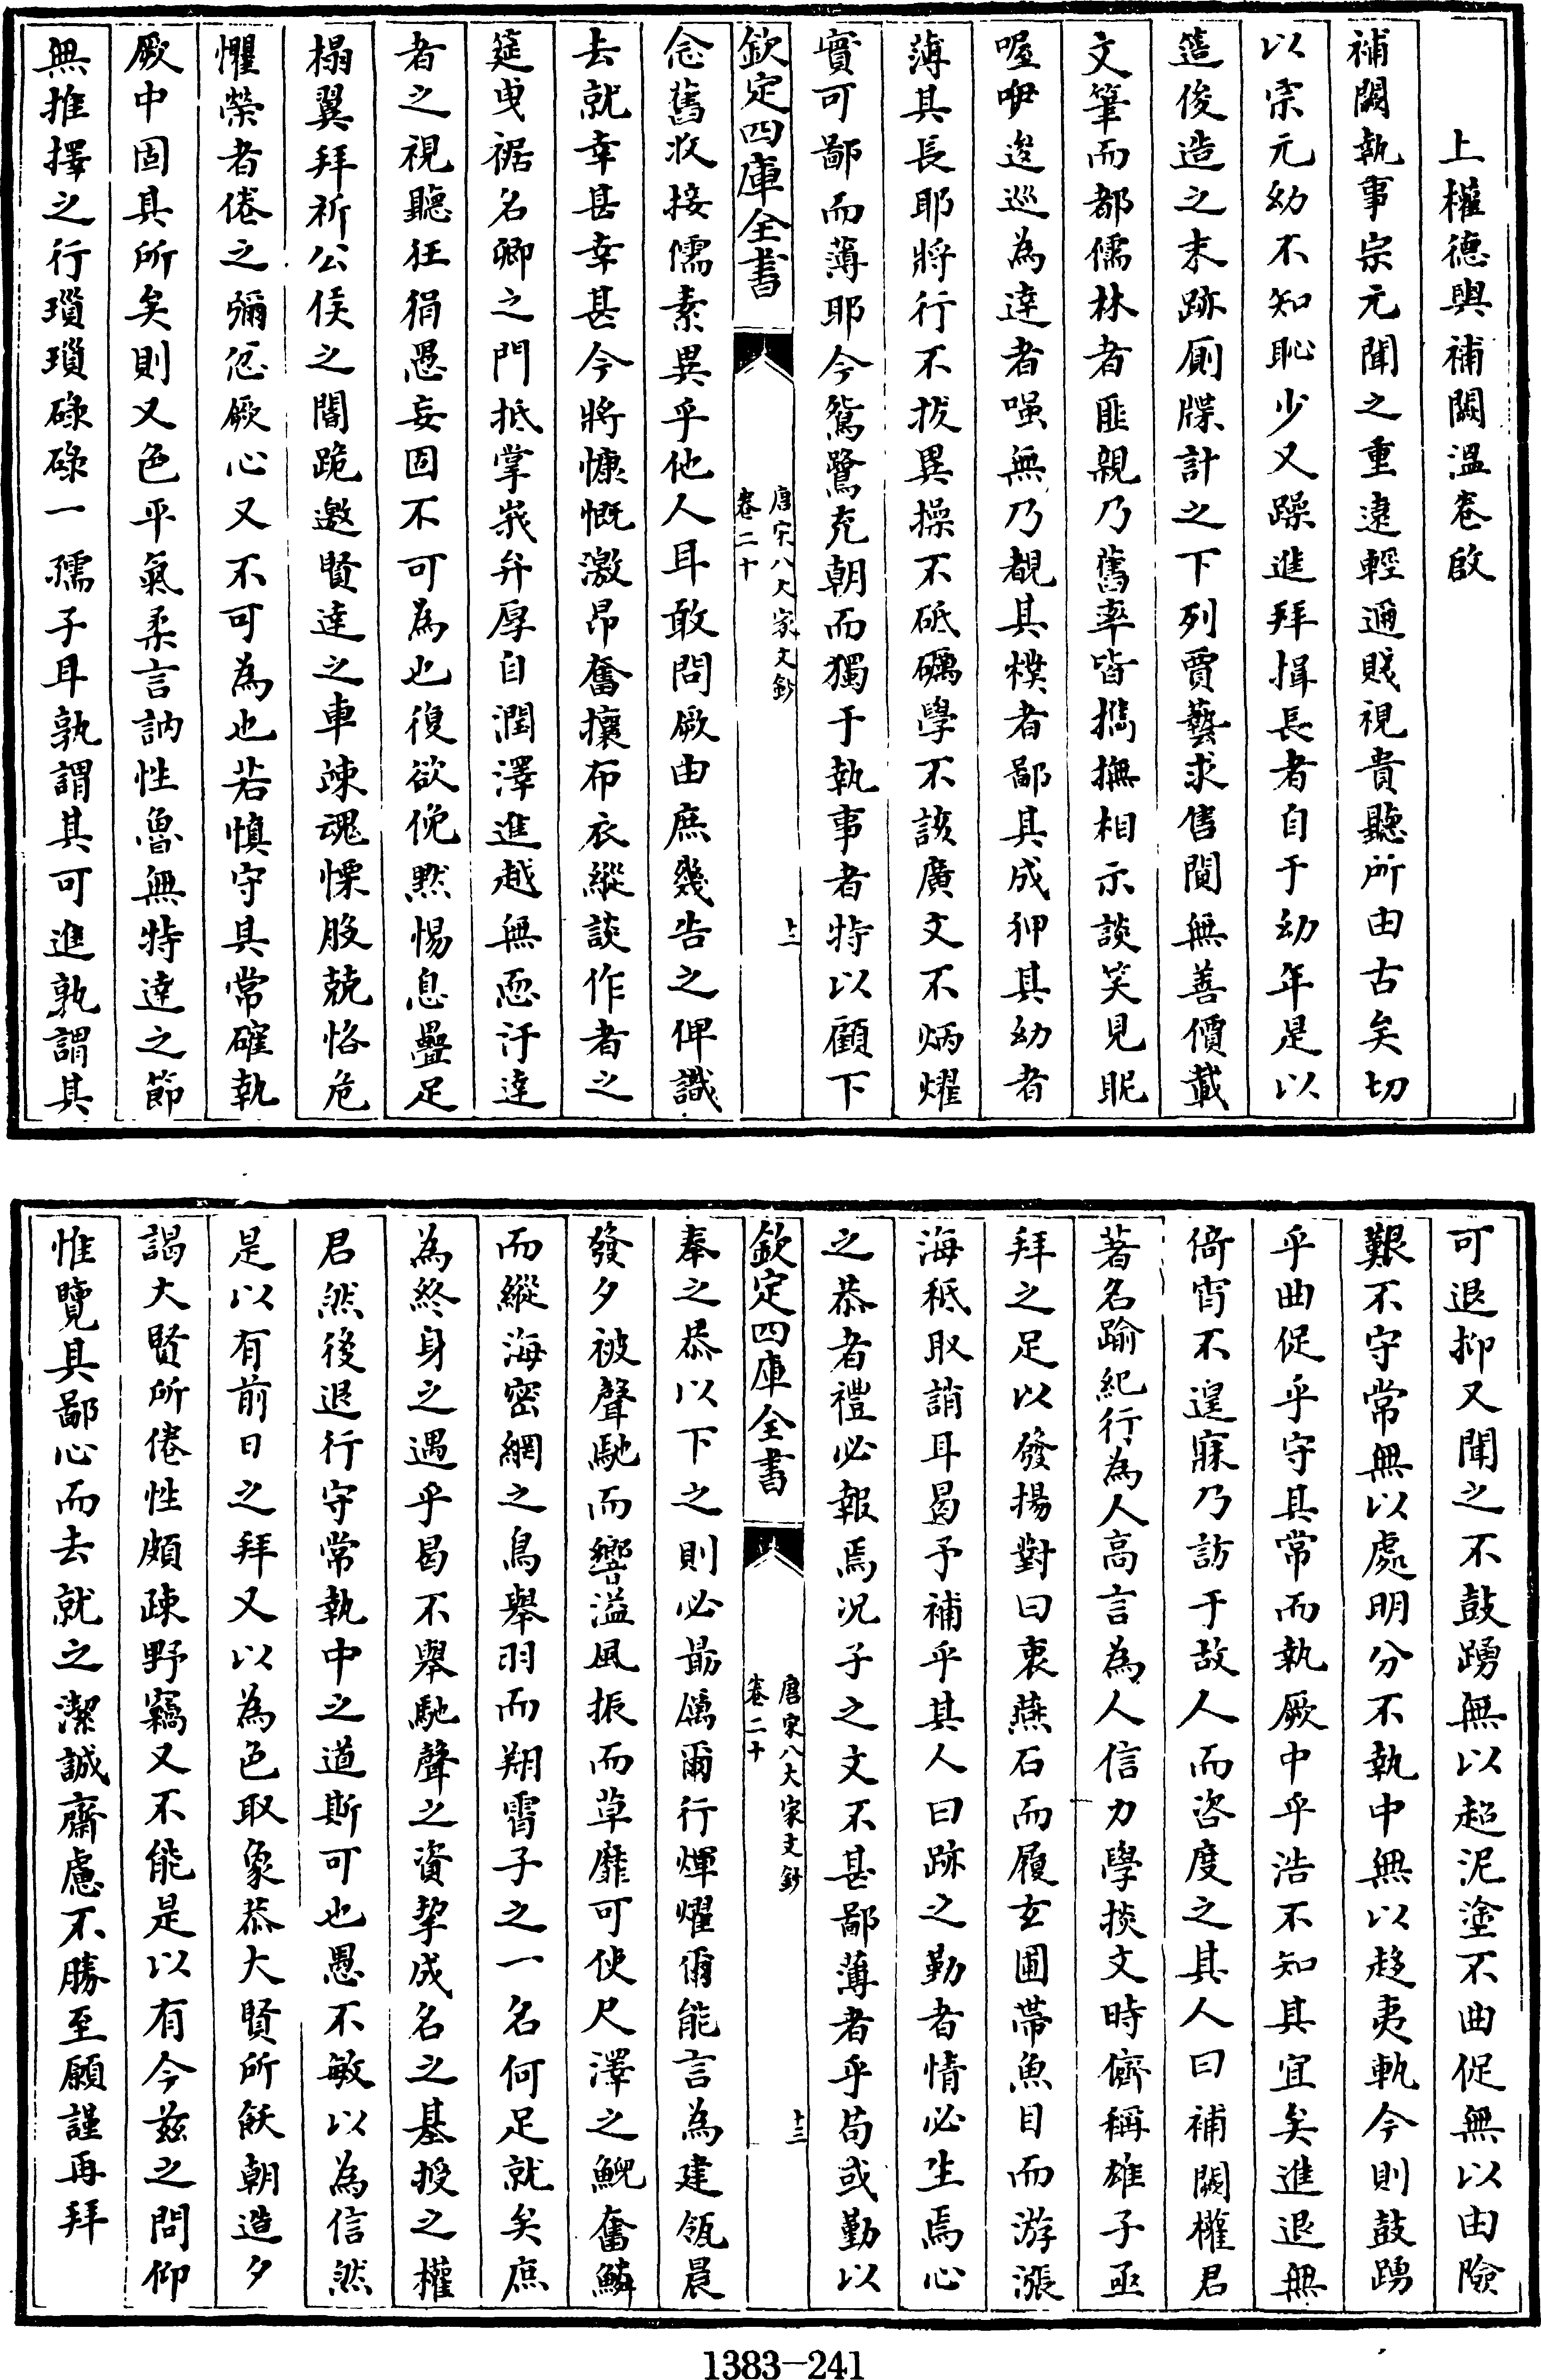 上權德輿補闕溫卷啟
補闕執事宗元聞之重遠輕邇賤視貴聽所由古矣切
以宗元幼不知恥少又躁進拜揖長者自于幼年是以
簉俊造之末跡廁牒計之下列賈藝求售閴無善價載
文筆而都儒林者匪親乃舊率皆攜撫相示談笑見昵
喔咿逡巡為達者嗤無乃覩其樸者鄙其成狎其幼者
薄其長耶將行不拔異操不砥礪學不該廣文不炳燿
實可鄙而薄耶今鴛鷺充朝而獨于執事者特以顧下
欽定四庫全書
唐宋八大家文鈔
卷二十
十二
念舊收接儒素異乎他人耳敢問厥由庶幾告之俾識
去就幸甚幸甚今將慷慨激昂奮攘布衣縱談作者之
筵曵裾名卿之門抵掌峩弁厚自潤澤進越無恧汙達
者之視聽狂狷愚妄固不可為也復欲俛默惕息疊足
榻翼拜祈公侯之閽跪邀賢達之車竦魂慄股兢恪危
懼榮者倦之彌忿厥心又不可為也若慎守其常確執
厥中固其所矣則又色平氣柔言訥性魯無特達之節
無推擇之行瑣瑣碌碌一孺子耳孰謂其可進孰謂其
可退抑又聞之不鼓踴無以超泥塗不曲促無以由險
艱不守常無以處明分不執中無以趍夷軌今則鼓踴
乎曲促乎守其常而執厥中乎浩不知其宜矣進退無
倚宵不遑寐乃訪于故人而咨度之其人曰補闕權君
著名踰紀行為人高言為人信力學掞文時儕稱雄子亟
拜之足以發揚對曰衷燕石而履玄圃帶魚目而游漲
海秪取誚耳曷予補乎其人曰跡之勤者情必生焉心
之恭者禮必報焉況子之文不甚鄙薄者乎苟或勤以
欽定四庫全書
唐宋八大家文鈔
卷二十
十三
奉之恭以下之則必勗厲爾行煇燿爾能言為建瓴晨
發夕被聲馳而響溢風振而草靡可使尺澤之鯢奮鱗
而縱海密網之鳥舉羽而翔霄子之一名何足就矣庶
為終身之遇乎曷不舉馳聲之資挈成名之基授之權
君然後退行守常執中之道斯可也愚不敏以為信然
是以有前日之拜又以為色取象恭大賢所飫朝造夕
謁大賢所倦性頗疎野竊又不能是以有今茲之問仰
惟覽其鄙心而去就之潔誠齋慮不勝至願謹再拜
1383-241